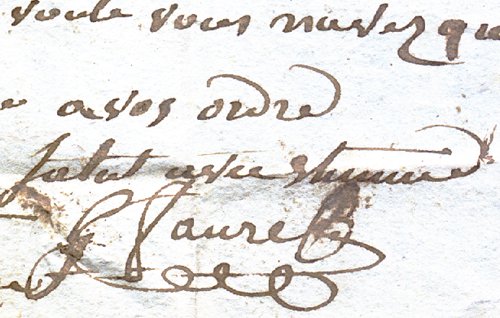 voule vous navez qu
a vos ordre
salut avec estime
Faure